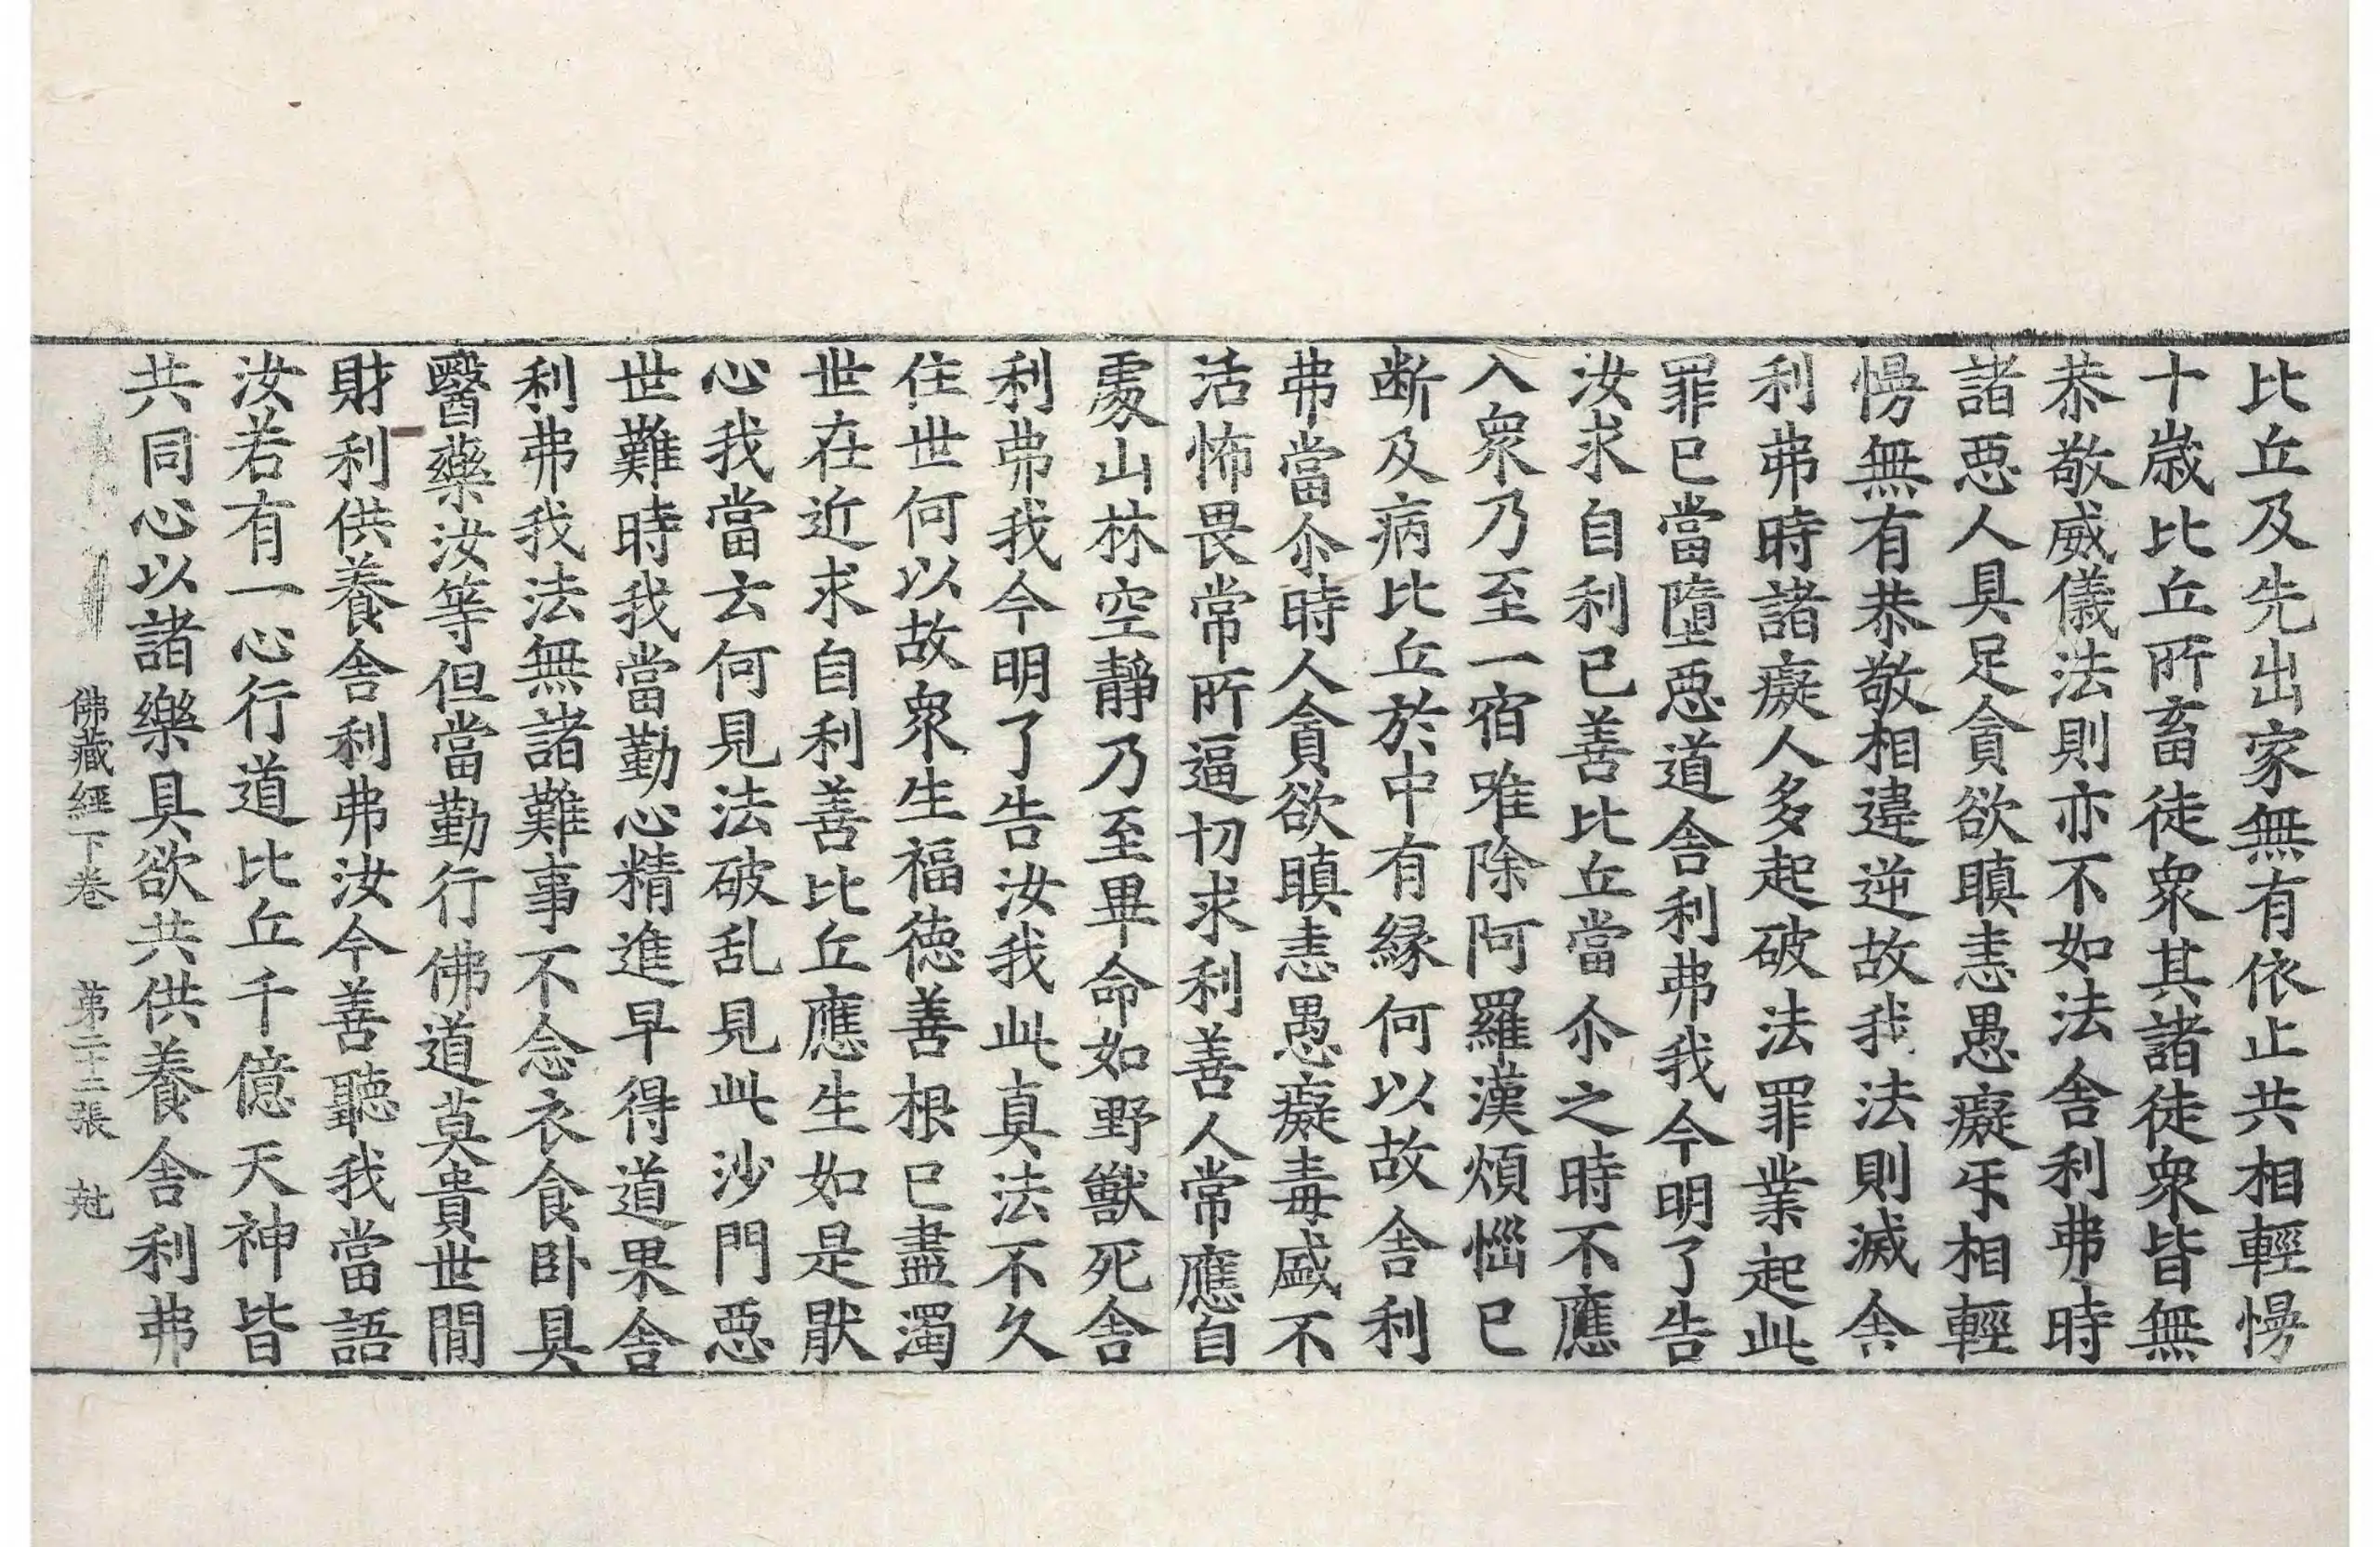 比丘及先出家無有依止共相輕㥄
十歲比丘所畜徒衆其諸徒衆皆無
恭敬威儀法則亦不如法舍利弗時
諸惡人具足貪欲瞋恚愚癡𠄔相輕
慢無有恭敬相違逆故我法則滅舍
利弗時諸癡人多起破法罪業起此
罪已當墮惡道舍利弗我今明了告
汝求自利已善比丘當尒之時不應
入衆乃至一宿唯除阿羅漢煩惱已
断及病比丘於中有縁何以故舍利
弗當尒時人貪欲瞋恚愚癡毒盛不
活怖畏常所逼切求利善人常應自
處山林空静乃至畢命如野獸死舍
利弗我今明了告汝我此真法不久
住世何以故衆生福德善根已盡濁
世在近求自利善比丘應生如是猒
心我當云何見法破乱見此沙門惡
世難時我當勤心精進早得道果舍
利弗我法無諸難事不念衣食卧具
醫藥汝等但當勤行佛道莫貴世間
財利供養舍利弗汝今善聽我當語
汝若有一心行道比丘千億天神皆
共同心以諸樂具欲共供養舍利弗
佛藏經下卷 第二十二張 尅